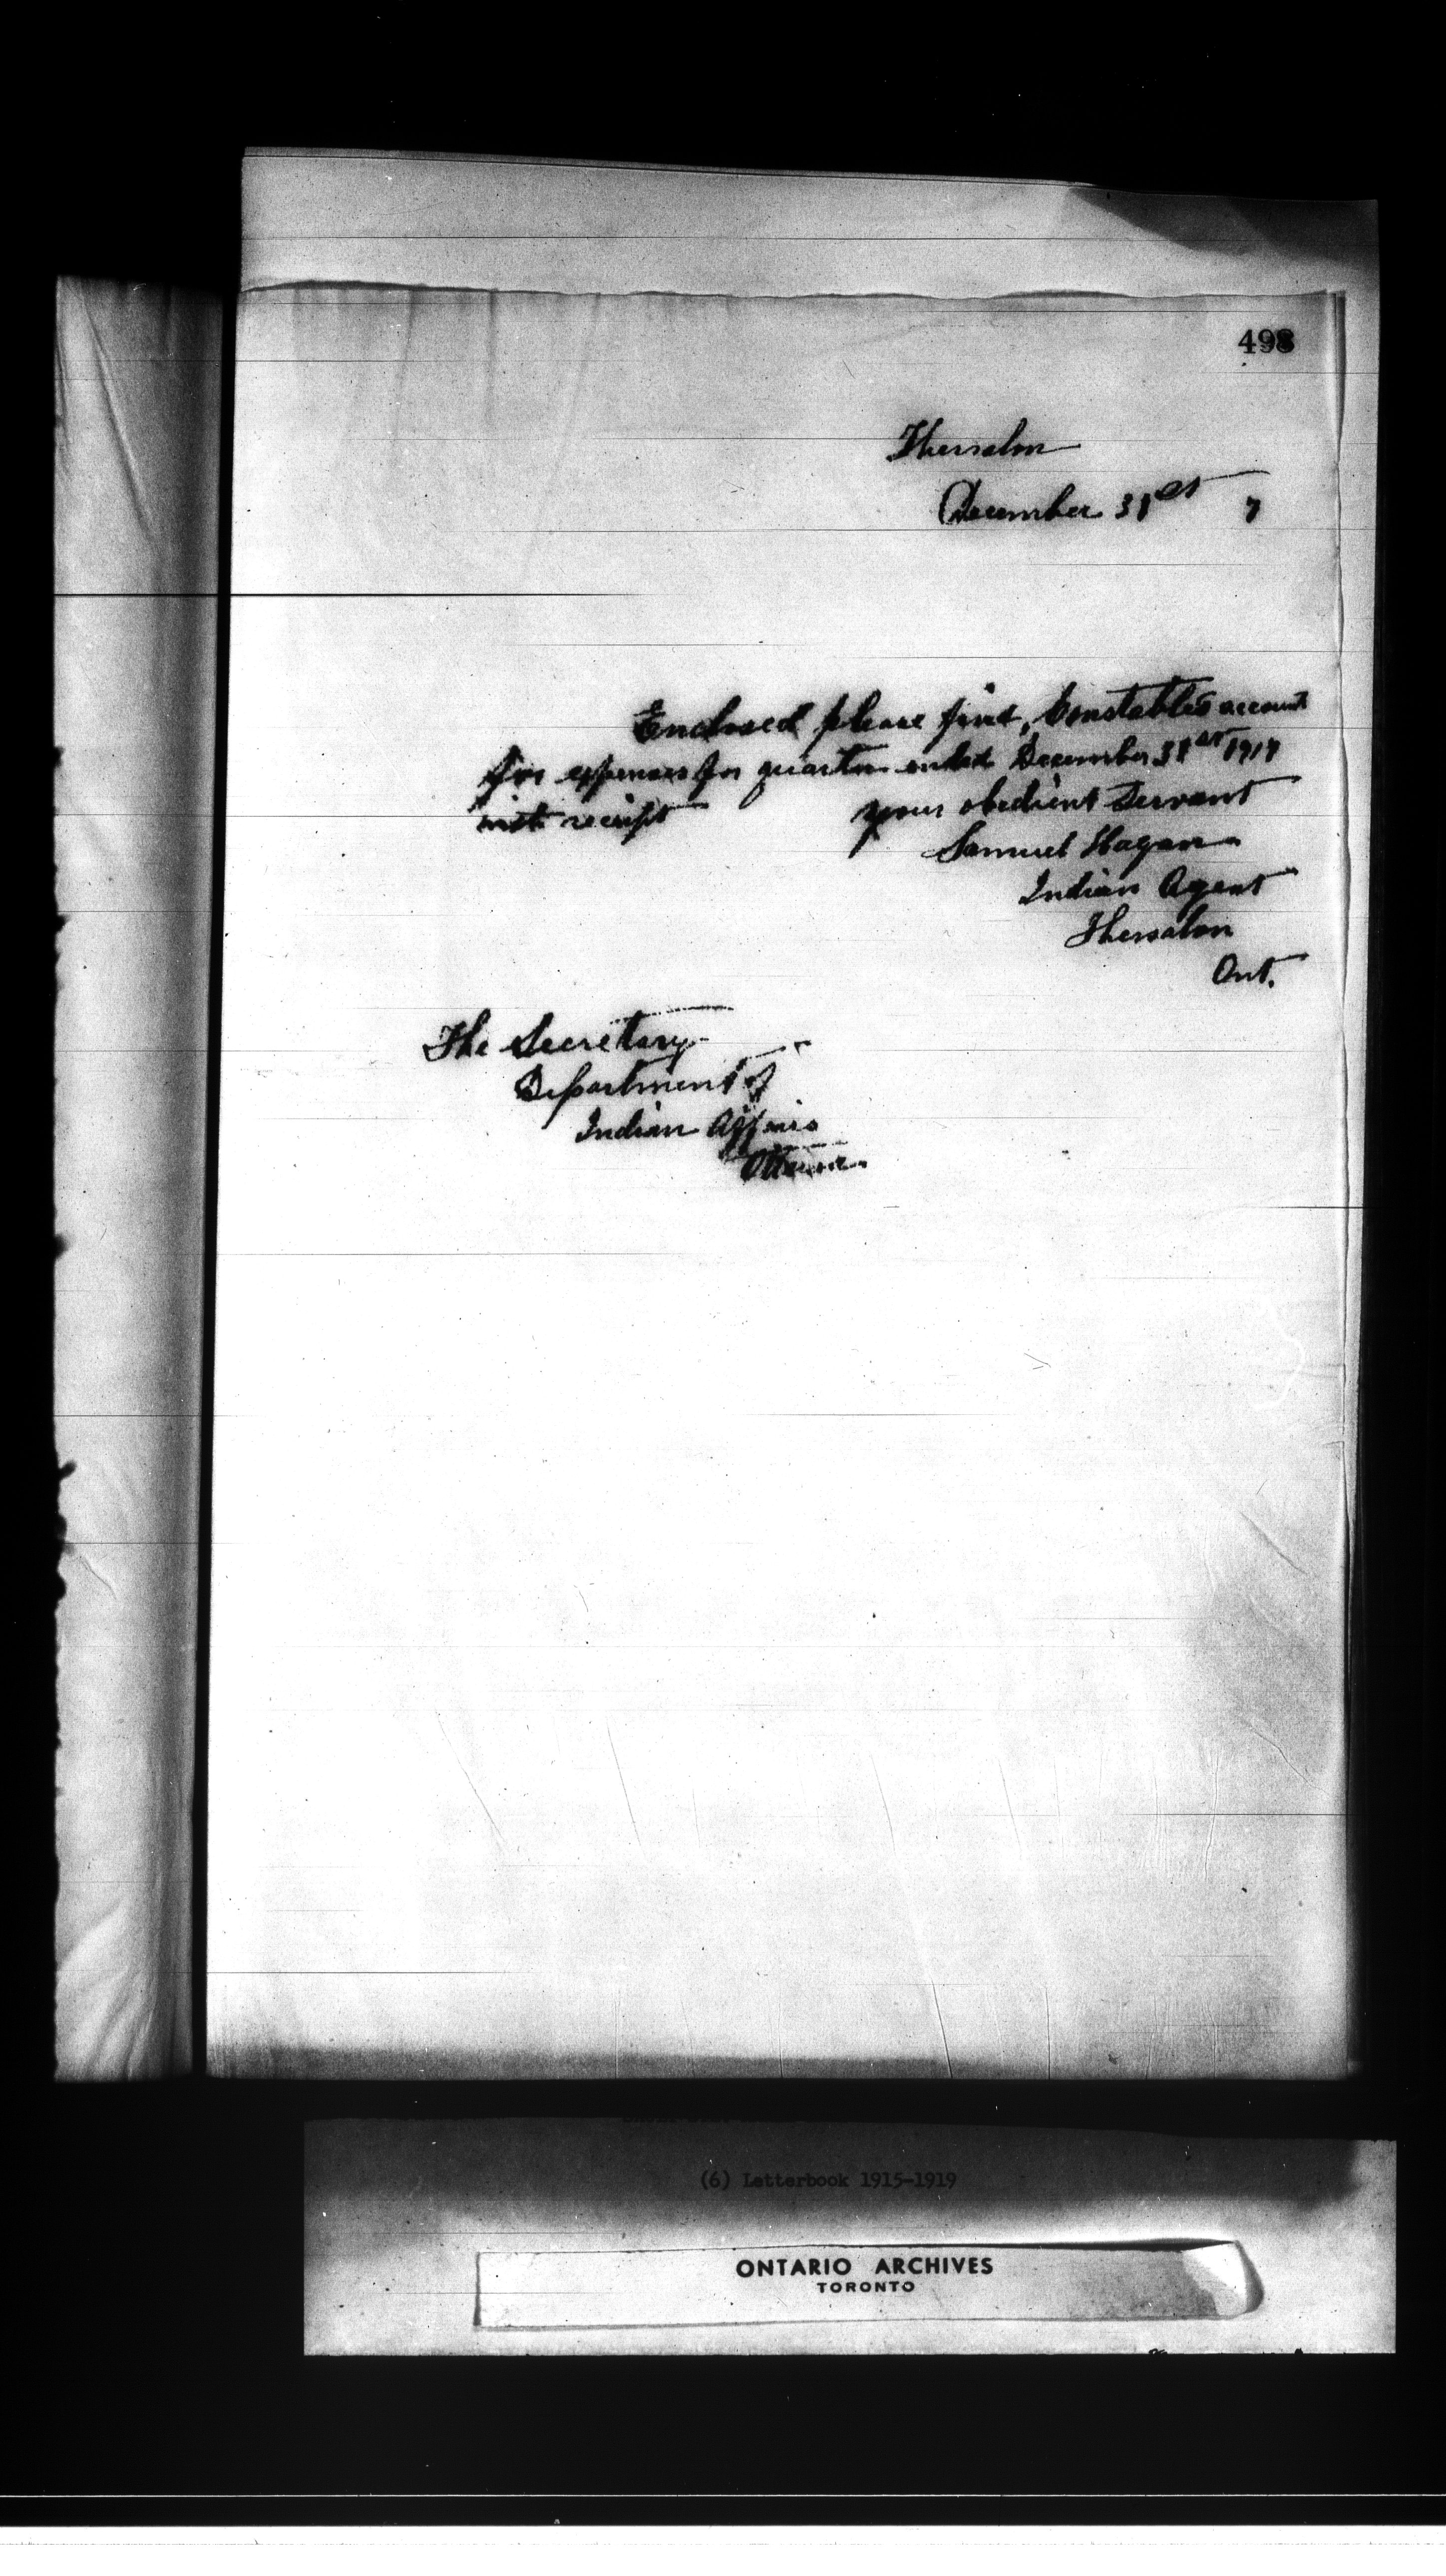 498
Thessalon
December 31st 7
Enclosed please find, Constables account
for expenses for quarter ended December 31st 1917
with receipt your obedient servant
Samuel Hagan
Indian Agent
Thessalon
Ont.
The Secretary
Department of
Indian Affairs
Ottawa
(6) Letterbook 1915-1919
ONTARIO ARCHIVES
TORONTO